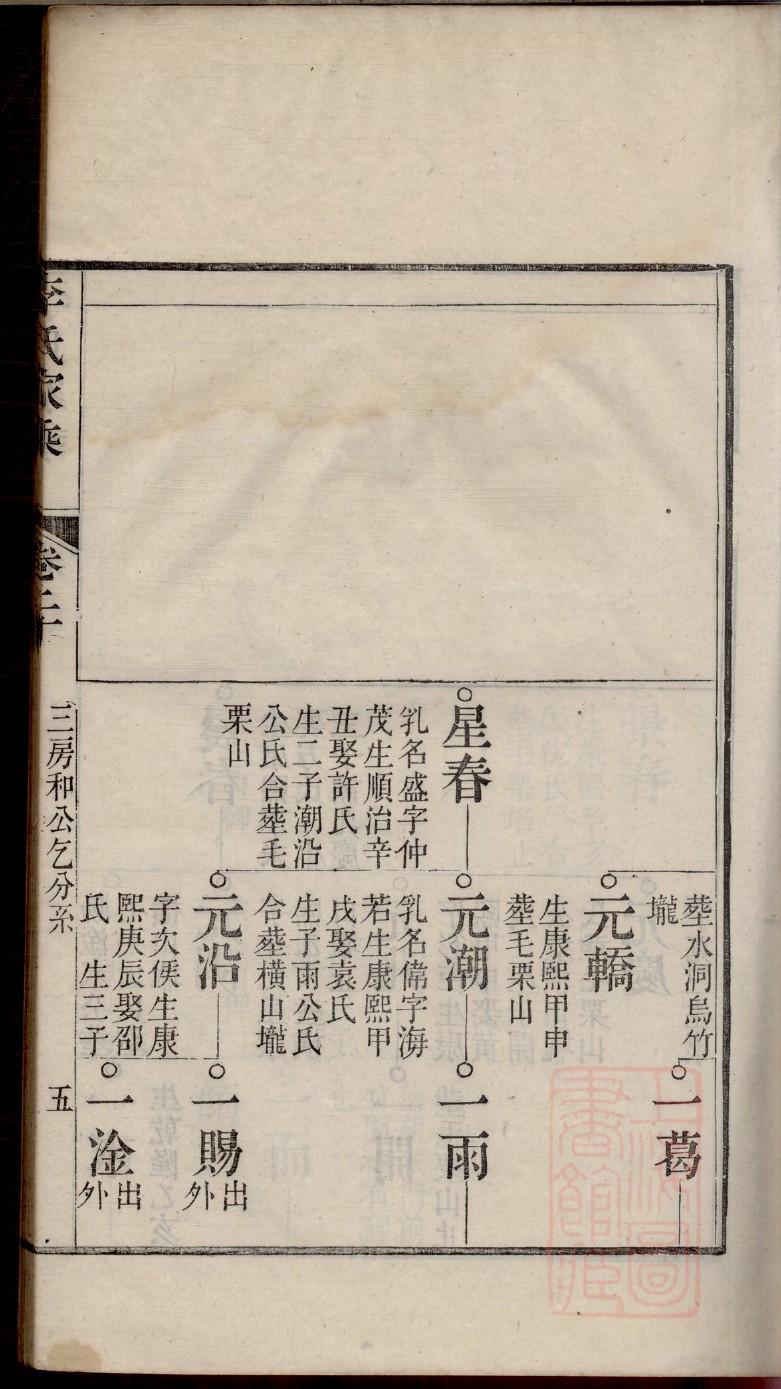 塟水洞烏竹
壠
一葛
元轎
生康熙甲申
塟毛栗山
星春
乳名盛字仲
茂生順治辛
丑娶許氏
生二子潮沿
公氏合塟毛
栗山
元潮
乳名偉字海
若生康熙甲
戌娶袁氏
生子雨公氏
合塟橫山壠
一雨
元沿
字次侯生康
熙庚辰娶邵
氏 生三子
一賜
出
外
一淦
出
外
李氏家乘
卷二十
三房和公乞分系
五